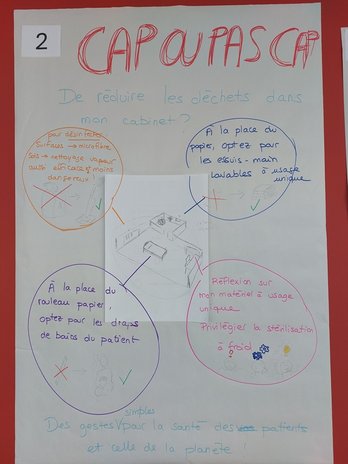 2
CAP OU PAS CAP
De réduire les déchets dans
mon cabinet ?
pour désinfecter
Surfaces → microfibre
Sols → nettoyage vapeur
aussi efficace & moins
dangereux !
À la place du
papier, optez pour
les essuis-main
lavables à usage
unique
À la place du
rouleau papier,
optez pour les draps
de bains du patient
Réflexion sur
mon matériel à usage
unique
Privilégier la stérilisation
à froid
Des gestes simples pour la santé des patients
et celle de la planète !